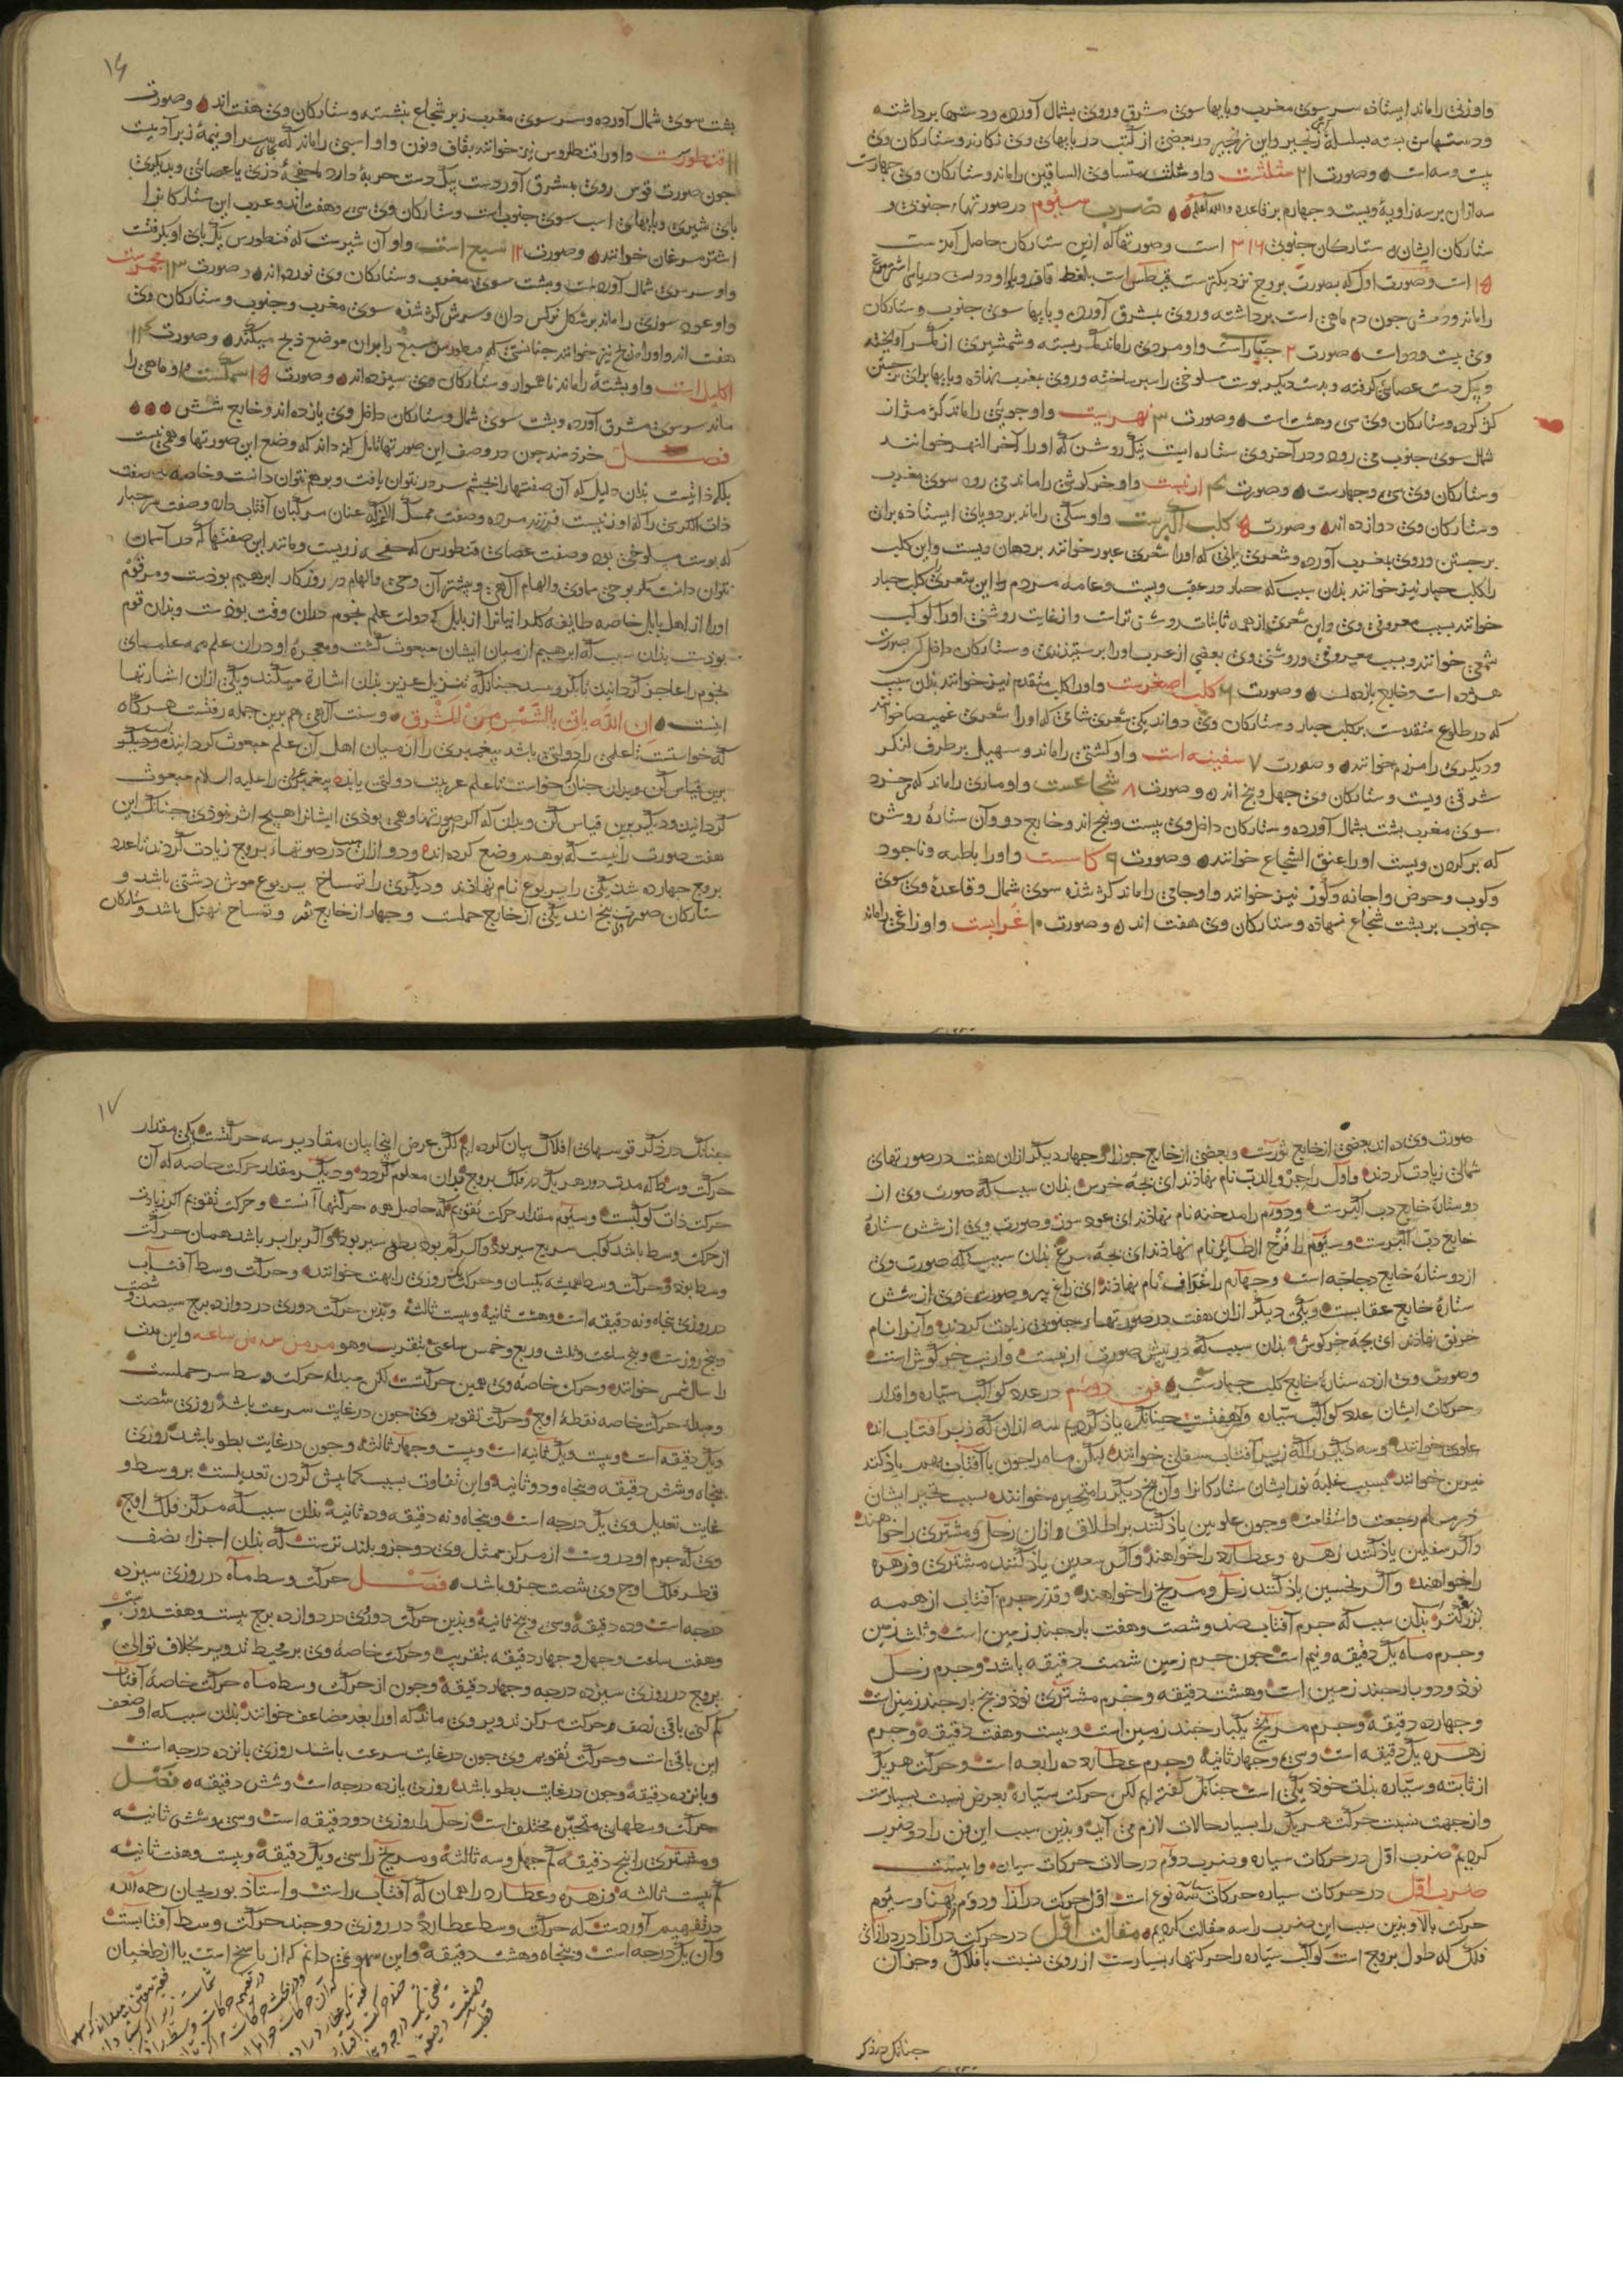 واو زنی را ماند ایستاده سر سوی مغرب و پایها سوی مشرق و روی بشمال آورده و دستها برداشته
ودستهاش بسته بسلسلهٔ زنجیر و این زنجیر در بعضی از کتب در پایهای وی نکارند و ستارکان وی
بیست و سه است و صورت ۲۱ مثلثست واو مثلث متساوی الساقین را ماند و ستارکان وی چهارست
سه ازان بر سه زاویهٔ ویست و چهارم بر قاعده والله اعلم ضرب سیوم در صورتهاء جنوبی و
ستارکان ایشان ستارکان جنوبی ۳۱۶ است و صورتها که ازین ستارکان حاصل آید
۱۵ است و صورت اول که بصورت بروج نزدیکترست قیطس است بلفظ قاف و یا واو
را ماند و دمش چون دم ماهی است برداشته و روی بمشرق آورده و پایها سوی جنوب و ستارکان
وی بیست و دواست و صورت ۲ جبار است واو مردی را ماند کمر بسته و شمشیری از کمر آویخته
و بیک دست عصایی کرفته و بدست دیکر پوست سلوخی را سپر ساخته و روی بمغرب نهاده و پایها برای جستن
کژ کرده و ستارکان وی سی و هشت است و صورت ۳ نهرست واو جویی را ماند کژ مژ از
شمال سوی جنوب می رود و در آخر وی ستاره ایست نیک روشن که او را آخر النهر خوانند
و ستارکان وی سی و چهارست و صورت ۴ ارنبست واو خرکوشی را ماند می رود سوی مغرب
و ستارکان وی دوازده اند و صورت ۵ کلب اکبرست واو سکی را ماند بر دو پای ایستاده برای
برجستن و روی بمغرب آورده و شعری یمانی که او را شعری عبور خوانند بر دهان ویست و این کلب
را کلب جبار نیز خوانند بدان سبب که جبار در عقب ویست و عامه مردم این شعری را کلب جبار
خوانند بسبب معروفی وی و این شعری از همه ثابتات روشن تر است و از غایت روشنی او را کوکب
شمعی خوانند و بسبب معروفی و روشنی وی بعضی از عرب او را پرستیدندی و ستارکان داخل صورت
هژده است و خارج یازده است و صورت ۶ کلب اصغرست واو را کلب متقدم نیز خوانند بدان سبب
که در طلوع متقدمست بر کلب جبار و ستارکان وی دواند یکی شعری شامی که او را شعری غمیصا خوانند
و دیکری را مرزم خوانند و صورت ۷ سفینه است واو کشتی را ماند و سهیل بر طرف لنکر
شرقی ویست و ستارکان وی چهل و پنج اند و صورت ۸ شجاعست واو ماری را ماند که می خزد
سوی مغرب پشت بشمال آورده و ستارکان داخل وی بیست و پنج اند و خارج دو و آن ستارهٔ روشن
که بر کردن ویست او را عنق الشجاع خوانند و صورت ۹ کاسست واو را باطیه و ناجود
وکوب و حوض و اجانه و کوز نیز خوانند واو جامی را ماند کژ شده سوی شمال و قاعدهٔ وی سوی
جنوب بر پشت شجاع نهاده و ستارکان وی هفت اند و صورت ۱۰ غرابست واو زاغی را ماند
۱۶
پشت سوی شمال آورده و سر سوی مغرب زبر شجاع نشسته و ستارکان وی هفت اند و صورت
۱۱ قنطورست واو را قنطاروس نیز خوانند بقاف و نون واو اسبی را ماند که بجای سر او نیمهٔ زبر آدمیست
چون صورت قوس روی بمشرق آورده بیک دست حربهٔ دارد با صفحهٔ زری یا عصایی و بدیکری
پای شیری و پایهای اسب سوی جنوب است و ستارکان وی سی و هفت اند و عرب این ستارکانرا
اشترمرغان خوانند و صورت ۱۲ سبع است واو آن شیرست که قنطورس یک پای او بکرفتست
واو سر سوی شمال آورده است و پشت سوی مغرب و ستارکان وی نوزده اند و صورت ۱۳ مجمرست
واو عود سوزی را ماند بر شکل نرکس دان و سرش کژ شده سوی مغرب و جنوب و ستارکان وی
هفت اند واو را مذبح نیز خوانند چنانستی که قنطورس سبع را بر آن موضع ذبح میکند و صورت ۱۴
اکلیل است واو پشتهٔ را ماند ناهموار و ستارکان وی سیزده اند و صورت ۱۵ سمکست واو ماهی را
ماند سر سوی مشرق آورده و پشت سوی شمال و ستارکان داخل وی یازده اند و خارج شش
فصل خردمند چون در وصف این صورتها تامل کند داند که وضع این صورتها وهمی نیست
بلکه ذاتیست بدان دلیل که آن صفتها را بچشم سر در نتوان یافت و بوهم نتوان دانست و خاصه صفت
ذات الکرسی را که او زنیست فرزند مرده وصفت ممسک الاعنه که عنان مرکبان آفتاب دارد و صفت مر جبار
که پوست مسلوخی بود وصفت عصای قنطورس که صفحهٔ زریست و مانند این صفتها که در آسمان
نتوان دانست مکر بوحی سماوی والهام الهی و بیشتر آن وحی والهام در روزکار ابرهیم بودست و مر قوم
او را از اهل بابل خاصه طایفه کلدانیانرا از بابل که دولت علم نجوم دران وقت بودست و بدان قوم
بودست بدان سبب که ابرهیم از میان ایشان مبعوث کشت و معجزهٔ او دران علم همه علمای
نجوم را عاجز کردانید تا بکرویدند چنانکه تنزیل عزیز بدان اشاره میکند و یکی ازان اشارتها
اینست ان الله یاتی بالشمس من المشرق و سنت الهی هم برین جمله رفتست هر کاه
که خواستست تا علمی را دولتی باشد پیغمبری را از میان اهل آن علم مبعوث کردانیده و دیکر
برین قیاس کن و بدان چنان خواست تا علم عربیت دولتی یابد پیغمبر عربی را علیه السلام مبعوث
کردانید و دیکر برین قیاس کن و بدان که اکر این صورتها وهمی بودی ایشانرا هیچ اثر نبودی چنانک این
هفت صورت را نیست که بوهم وضع کرده اند و دو ازان در صورتهاء بروج زیادت کردند تا عدد
بروج چهارده شد یکی را یربوع نام نهادند و دیکری را تمساح یربوع موش دشتی باشد و
ستارکان صورت وی پنج اند یکی از خارج حملست و چهار از خارج ثور و تمساح نهنک باشد و ستارکان
صورت وی ده اند بعضی از خارج ثورست و بعضی از خارج جوزا و چهار دیکر ازان هفت در صورتهای
شمالی زیادت کردند و اول را جرو الدب نام نهادند ای بچهٔ خرس بدان سبب که صورت وی از
دو ستارهٔ خارج دب اکبرست و دوم را مدخنه نام نهادند ای عود سوز و صورت وی از شش ستارهٔ
خارج دب اکبرست و سیوم را فرخ الطایر نام نهادند ای بچهٔ مرغ بدان سبب که صورت وی
از دو ستارهٔ خارج دجاجه است و چهارم را غداف نام نهادند ای زاغ پر و صورت وی از شش
ستارهٔ خارج عقابست و یکی دیکر ازان هفت در صورتهاء جنوبی زیادت کردند و آنرا نام
خرنق نهادند ای بچهٔ خرکوش بدان سبب که در پیش صورت ارنبست و ارنب خرکوش است
و صورت وی از ده ستارهٔ خارج کلب جبارست فن دوم در عدد کواکب سیاره و اقدار
حرکات ایشان عدد کواکب سیاره هفتست چنانک یاذ کردیم سه ازان که زبر آفتاب اند
علوی خوانند و سه دیکر را که زیر آفتاب سفلی خوانند لیکن ماه را چون با آفتاب بهم یاذ کنند
نیرین خوانند بسبب غلبهٔ نور ایشان ستارکانرا و آن پنج دیکر را متحیره خوانند بسبب تحیر ایشان
رجعت و استقامت و چون علویین یاذ کنند بر اطلاق ازان زحل و مشتری را خواهند
واکر سفلیین یاذ کنند زهره و عطارد را خواهند واکر سعدین یاذ کنند مشتری و زهره
را خواهند واکر نحسین یاذ کنند زحل و مریخ را خواهند و قدر جرم آفتاب از همه
بزرکتر بدان سبب که جرم آفتاب صد و شصت و هفت بار چند زمین است و ثلث زمین
و جرم ماه یک دقیقه و نیم است چون جرم زمین شصت دقیقه باشد و جرم زحل
نود و دو بار چند زمین است و هشت دقیقه و جرم مشتری نود و پنج بار چند زمین است
و چهارده دقیقه و جرم مریخ یکبار چند زمین است و بیست و هفت دقیقه و جرم
زهره یک دقیقه است و سی و چهار ثانیه و جرم عطارد ده رابعه است و حرکت هر یک
از ثابته و سیاره بذات خود یکی است چنانک کفته ایم لکن حرکت سیاره بعرض نسبت بسیارست
واز جهت نسبت حرکت هر یک را بسیار حالات لازم می آید و بدین سبب این فن را دو ضرب
کردیم ضرب اول در حرکات سیاره و ضرب دوم در حالات حرکات سیاره واینست
ضرب اول در حرکات سیاره حرکات سه نوع است اول حرکت درازا و دوم پهنا و سیوم
حرکت بالا و بدین سبب این ضرب را سه مقالت کردیم مقالت اول در حرکت درازا در درازای
فلک که طول بروج است کواکب سیاره را حرکتهاء بسیارست از روی نسبت با افلاک و جز آن
چنانک در ذکر
۱۷
چنانک در ذکر قوسهای افلاک بیان کرده ایم لکن غرض اینجا بیان مقادیر سه حرکتست یکی مقدار
حرکت وسط که مدت دور هر یک در فلک بروج بدان معلوم کردد و دیکر مقدار حرکت خاصه که آن
حرکت ذات کوکبست و سیوم مقدار حرکت تقویم که حاصل همه حرکتها آنست و حرکت تقویم اکر زیادت
از حرکت وسط باشد کوکب سریع سیر بود واکر کم بود بطی سیر بود واکر برابر باشد همان حرکت
وسط بود و حرکت وسط همیشه یکسان و حرکت یک روزی را بهت خوانند و حرکت وسط آفتاب
در روزی پنجاه و نه دقیقه است و هشت ثانیه و بیست ثالثه و بدین حرکت دوری در دوازده برج سیصد و شصت
و پنج روزست و پنج ساعت و ثلث و ربع و خمس ساعتی بتقریب وهو من ساعه و این مدت
را سال شمسی خوانند و حرکت خاصهٔ وی همین حرکتست لکن مبداء حرکت وسط سر حملست
و مبداء حرکت خاصه نقطهٔ اوج و حرکت تقویم وی چون در غایت سرعت باشد روزی شصت
و یک دقیقه است و بیست و یک ثانیه است و بیست و چهار ثالثه و چون در غایت بطو باشد روزی
پنجاه و شش دقیقه و پنجاه و دو ثانیه و این تفاوت بسبب کمابیش کردن تعدیلست بر وسط و
غایت تعدیل وی یک درجه است و پنجاه و نه دقیقه و ده ثانیه بدان سبب که مرکز فلک اوج
وی که جرم او دروست از مرکز ممثل وی دو جزو بلندترست که بدان اجزاء نصف
قطر فلک اوج وی شصت جزو باشد فصل حرکت وسط ماه در روزی سیزده
درجه است و ده دقیقه و سی و پنج ثانیه و بدین حرکت دوری در دوازده برج بیست و هفت روزست
و هفت ساعت و چهل و چهار دقیقه بتقریب و حرکت خاصهٔ وی بر محیط تدویر بخلاف توالی
بروج در روزی سیزده درجه و چهار دقیقه و چون از حرکت وسط ماه حرکت خاصهٔ آفتاب
کم کنی باقی نصف حرکت مرکز تدویر وی ماند که او را بعد مضاعف خوانند بدان سبب که او ضعف
این باقی است و حرکت تقویم وی چون در غایت سرعت باشد روزی پانزده درجه است
و پانزده دقیقه و چون در غایت بطو باشد روزی یازده درجه است و شش دقیقه فصل
حرکت وسطهای متحیره مختلف است زحل را روزی دو دقیقه است و سی و شش ثالثه
و مشتری را پنج دقیقه کم چهل و سه ثالثه و مریخ را سی و یک دقیقه و بیست و هفت ثانیه
کم بیست ثالثه و زهره و عطارد را همان که آفتاب راست و استاذ بوریحان رحمه الله
در تفهیم آوردست که حرکت وسط عطارد در روزی دو چند حرکت وسط آفتابست
و آن یک درجه است و پنجاه و هشت دقیقه و این سهو نمی دانم که از ناسخ است یا از طغیان